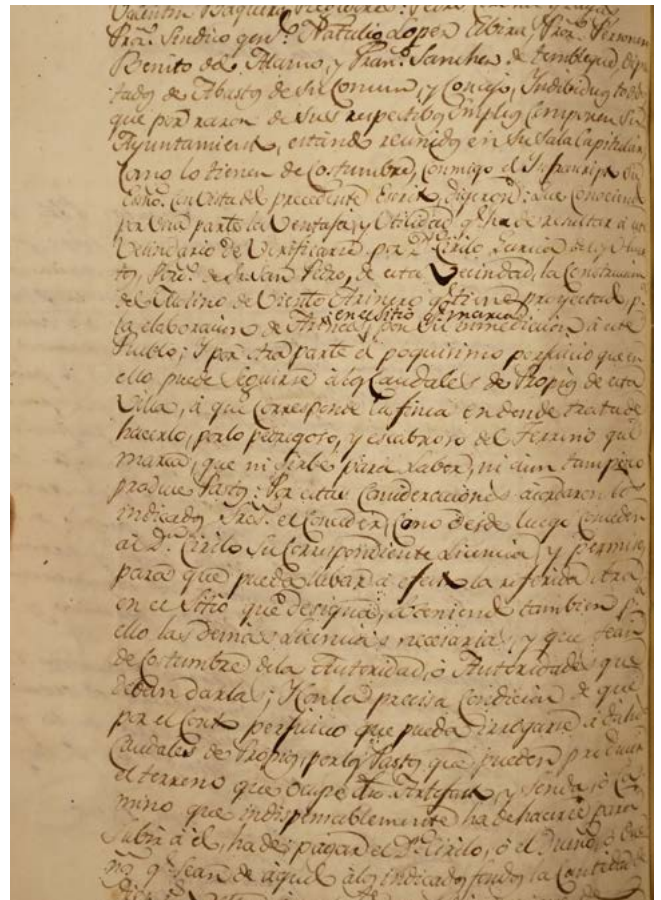 Valentin Baquero
Pror. Sindico genl. Natalio Lopez Elvira, Pror. Personero
Benito del Alamo, y Franco. Sanchez de Tembleque, Dipu
tados de Abastos de su Comun, y Concejo, Yndibiduos todos
que por razon de sus respectibos Empleos Componen su
Ayuntamiento, estando reunidos en su Sala Capitular
como lo tienen de Costumbre, Conmigo el Ynfrascripto su
Esno. Con vista del precedente Escrito, digeron: Que conociendo
por una parte la Ventaja, y Utilidad qe. ha de resultar á este
Vecindario de Verificarse por Dn. Cirilo
de San Pedro, de esta Vecindad, la Construccion
del Molino de Viento Arinero qe. tiene proyectado, pa.
en el sitio qe. marca
la elaboracion de Arinas, por su inmediacion á este
Pueblo; Y por otra parte el poquisimo perjuicio que en
ello puede Seguirse á los Caudales de Propios de esta
Villa, á que Corresponde la finca en donde trata de
hacerlo, por lo pedregoso, y escabroso del Terreno que
marca, que ni sirbe para Labor, ni aun tampoco
produce Pastos: Por estas Consideraciones acordaron los
indicados Sres. el Conceder, Como desde luego Conceden
al Dn. Cirilo su Correspondiente Licencia, y permiso,
para que pueda llebar á efecto la referida Obra
en el Sitio que designa, obteniendo tambien pa.
ello las demas Licencias necesarias, y que sean
de Costumbre de la Autoridad, ó Autoridades que
deban darla; Y con la precisa Condicion de que
por el Corto perjuicio que pueda irrogarse á dichos
Caudales de Propios, por los Pastos que pueden producir
el terreno que ocupe dho. Artefacto, y senda, ó Ca
mino que indispensablemente ha de hacerse para
Subir á él, ha de pagar el Dn. Cirilo, ó el Dueño, ó Due
ños qe. sean de aquel á los indicados fondos la Cantidad de